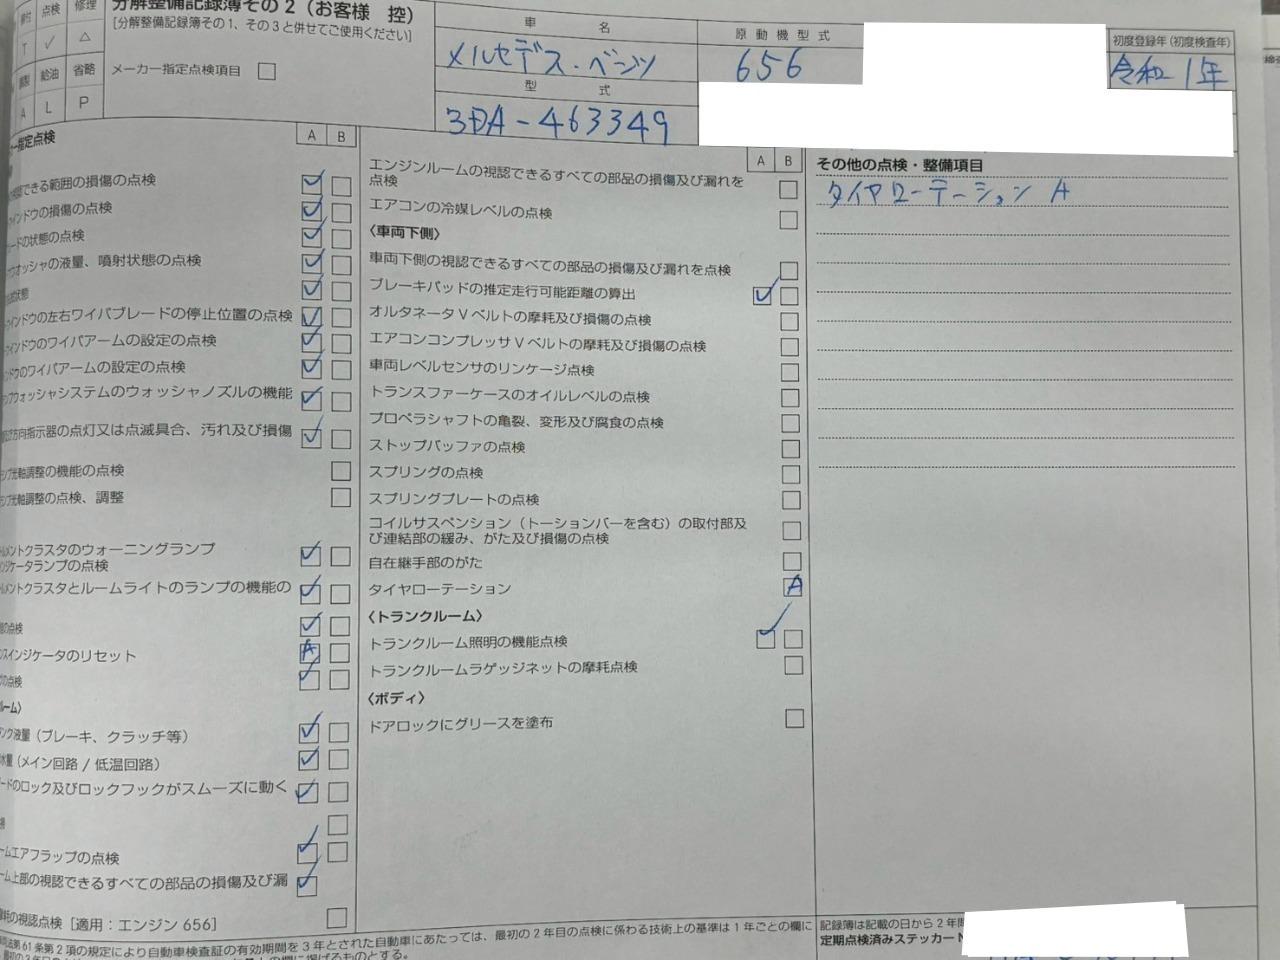 点検 修理
T ✓ △
給油 省略
A L P
分解整備記録簿その2(お客様 控)
[分解整備記録簿その1、その3と併せてご使用ください]
メーカー指定点検項目
車 名
メルセデス・ベンツ
型 式
3DA-463349
原動機型式
656
初度登録年(初度検査年)
令和 1年
指定点検
A B
できる範囲の損傷の点検
ィンドウの損傷の点検
ードの状態の点検
ウォッシャの液量、噴射状態の点検
状態
ィンドウの左右ワイパブレードの停止位置の点検
ィンドウのワイパアームの設定の点検
ンドウのワイパアームの設定の点検
ンプウォッシャシステムのウォッシャノズルの機能
方向指示器の点灯又は点滅具合、汚れ及び損傷
光軸調整の機能の点検
光軸調整の点検、調整
ルメントクラスタのウォーニングランプ
ジケータランプの点検
ルメントクラスタとルームライトのランプの機能の
の点検
スインジケータのリセット A
の点検
ーム〉
ンク液量(ブレーキ、クラッチ等)
水量(メイン回路/低温回路)
ードのロック及びロックフックがスムーズに動く
ームエアフラップの点検
ーム上部の視認できるすべての部品の損傷及び漏
の視認点検[適用:エンジン656]
A B
エンジンルームの視認できるすべての部品の損傷及び漏れを
点検
エアコンの冷媒レベルの点検
〈車両下側〉
車両下側の視認できるすべての部品の損傷及び漏れを点検
ブレーキパッドの推定走行可能距離の算出
オルタネータVベルトの摩耗及び損傷の点検
エアコンコンプレッサVベルトの摩耗及び損傷の点検
車両レベルセンサのリンケージ点検
トランスファーケースのオイルレベルの点検
プロペラシャフトの亀裂、変形及び腐食の点検
ストップバッファの点検
スプリングの点検
スプリングプレートの点検
コイルサスペンション(トーションバーを含む)の取付部及
び連結部の緩み、がた及び損傷の点検
自在継手部のがた
タイヤローテーション A
〈トランクルーム〉
トランクルーム照明の機能点検
トランクルームラゲッジネットの摩耗点検
〈ボディ〉
ドアロックにグリースを塗布
その他の点検・整備項目
タイヤローテーション A
法第61条第2項の規定により自動車検査証の有効期間を3年とされた自動車にあたっては、最初の2年目の点検に係わる技術上の基準は1年ごとの欄に
の欄に掲げるものとする。
記録簿は記載の日から2年間
定期点検済みステッカーN